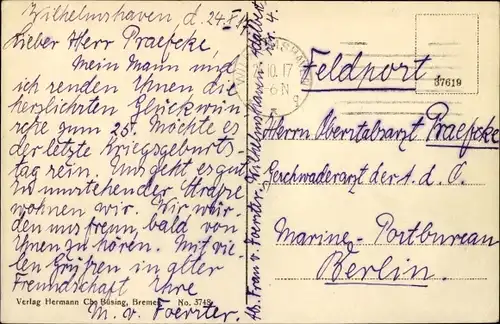 Wilhelmshaven d. 24.X.17
Lieber Herr Praefcke,
Mein Mann und
ich senden Ihnen die
herzlichsten Glückwün-
sche zum 25. Möchte es
der letzte Kriegsgeburts-
tag sein. Uns geht es gut
In umstehender Straße
wohnen wir. Wir wür-
den uns freun, bald von
Ihnen zu hören. Mit vie-
len Grüßen in alter
Freundschaft Ihre
M. v. Foerster.
Verlag Hermann Chr. Büsing, Bremen. No. 3748
Ab. Frau v. Foerster, Wilhelmshaven Adalbert
str. 4.
10.17
6-N
Feldpost
37619
Herrn Oberstabsarzt Praefcke
Geschwaderarzt der A. d. O.
Marine-Postbureau
Berlin.